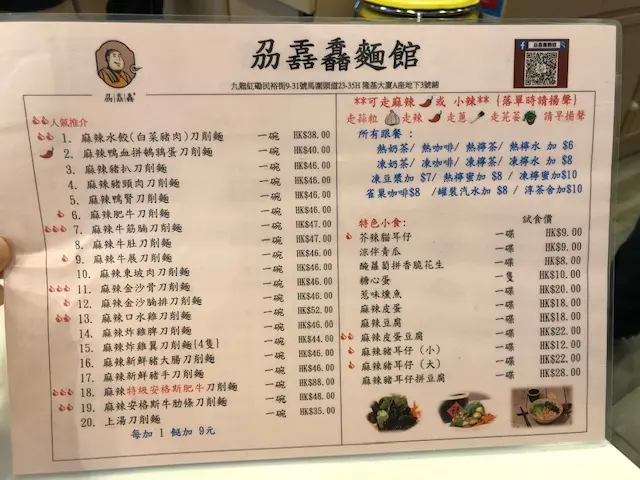 刕磊灥麵館
九龍紅磡民裕街9-31號馬頭圍道23-35H 隆基大廈A座地下3號鋪
人氣推介
1. 麻辣水餃(白菜豬肉)刀削麵 一碗 HK$38.00
2. 麻辣鴨血拼鵪鶉蛋刀削麵 一碗 HK$40.00
3. 麻辣豬扒刀削麵 一碗 HK$46.00
4. 麻辣豬頸肉刀削麵 一碗 HK$46.00
5. 麻辣鴨腎刀削麵 一碗 HK$46.00
6. 麻辣肥牛刀削麵 一碗 HK$46.00
7. 麻辣牛筋腩刀削麵 一碗 HK$47.00
8. 麻辣牛肚刀削麵 一碗 HK$47.00
9. 麻辣牛展刀削麵 一碗 HK$46.00
10. 麻辣東坡肉刀削麵 一碗 HK$46.00
11. 麻辣金沙骨刀削麵 一碗 HK$46.00
12. 麻辣金沙腩排刀削麵 一碗 HK$46.00
13. 麻辣口水雞刀削麵 一碗 HK$52.00
14. 麻辣炸雞髀刀削麵 一碗 HK$46.00
15. 麻辣炸雞翼刀削麵{4隻} 一碗 HK$44.00
16. 麻辣新鮮豬大腸刀削麵 一碗 HK$46.00
17. 麻辣新鮮豬手刀削麵 一碗 HK$46.00
18. 麻辣特級安格斯肥牛刀削麵 一碗 HK$88.00
19. 麻辣安格斯牛肋條刀削麵 一碗 HK$48.00
20. 上湯刀削麵 一碗 HK$35.00
每加 1 餸加 9元
**可走麻辣 或 小辣** {落單時請揚聲}
走蒜粒 走辣 走蔥 走芫荽 請早揚聲
所有跟餐:
熱奶茶/ 熱咖啡/ 熱檸茶/ 熱檸水 加 $6
凍奶茶/ 凍咖啡/ 凍檸茶/ 凍檸水 加 $8
凍豆漿加 $7/ 熱檸蜜加$8 / 凍檸蜜加$10
雀巢咖啡$8 /罐裝汽水加 $8 / 洋茶舍加$10
特色小食: 試食價
芥辣貓耳仔 一碟 HK$9.00
涼伴青瓜 一碟 HK$9.00
醃蘿蔔拼香脆花生 一碟 HK$9.00
糖心蛋 一隻 HK$10.00
葱味燻魚 一碟 HK$20.00
麻辣皮蛋 一碟 HK$18.00
麻辣豆腐 一碟 HK$18.00
麻辣皮蛋豆腐 一碟 HK$22.00
麻辣豬耳仔 (小) 一碟 HK$12.00
麻辣豬耳仔 (大) 一碟 HK$22.00
麻辣豬耳仔拼豆腐 一碟 HK$28.00